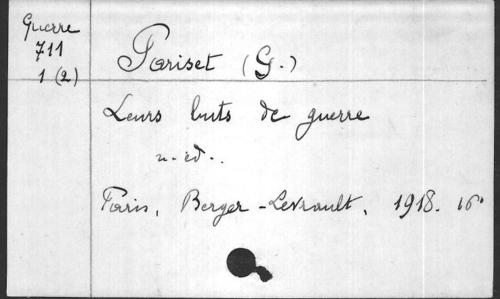 Guerre
711
1 (2)
Pariset (G.)
Leurs buts de guerre
n. éd..
Paris, Berger-Levrault, 1918. 16°